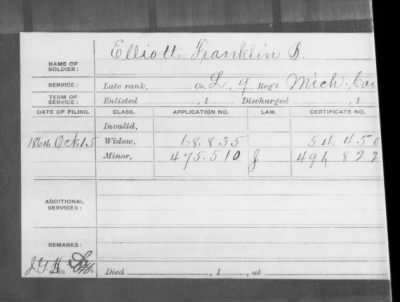 Elliott Franklin B.
NAME OF SOLDIER:
SERVICE: Late rank, Co. L. 9 Reg't Mich. Cav
TERM OF SERVICE: Enlisted , 1 Discharged , 1
DATE OF FILING. CLASS. APPLICATION NO. LAW. CERTIFICATE NO.
Invalid,
Oct. 15 Widow, 68.835
Minor, 475.510 J 494 822
ADDITIONAL SERVICES:
REMARKS:
Died , 1 , at